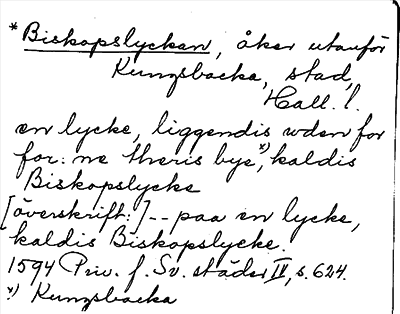 * Biskopslyckan, åker utanför
Kungsbacka, stad,
Hall. l.
en lycke, liggendis uden for
for: ne theris bye x), kaldis
Biskopslycke
[överskrift:] -- paa en lycke,
kaldis Biskopslycke.
1594 Priv. f. Sv. städer IV, s. 624.
x) Kungsbacka